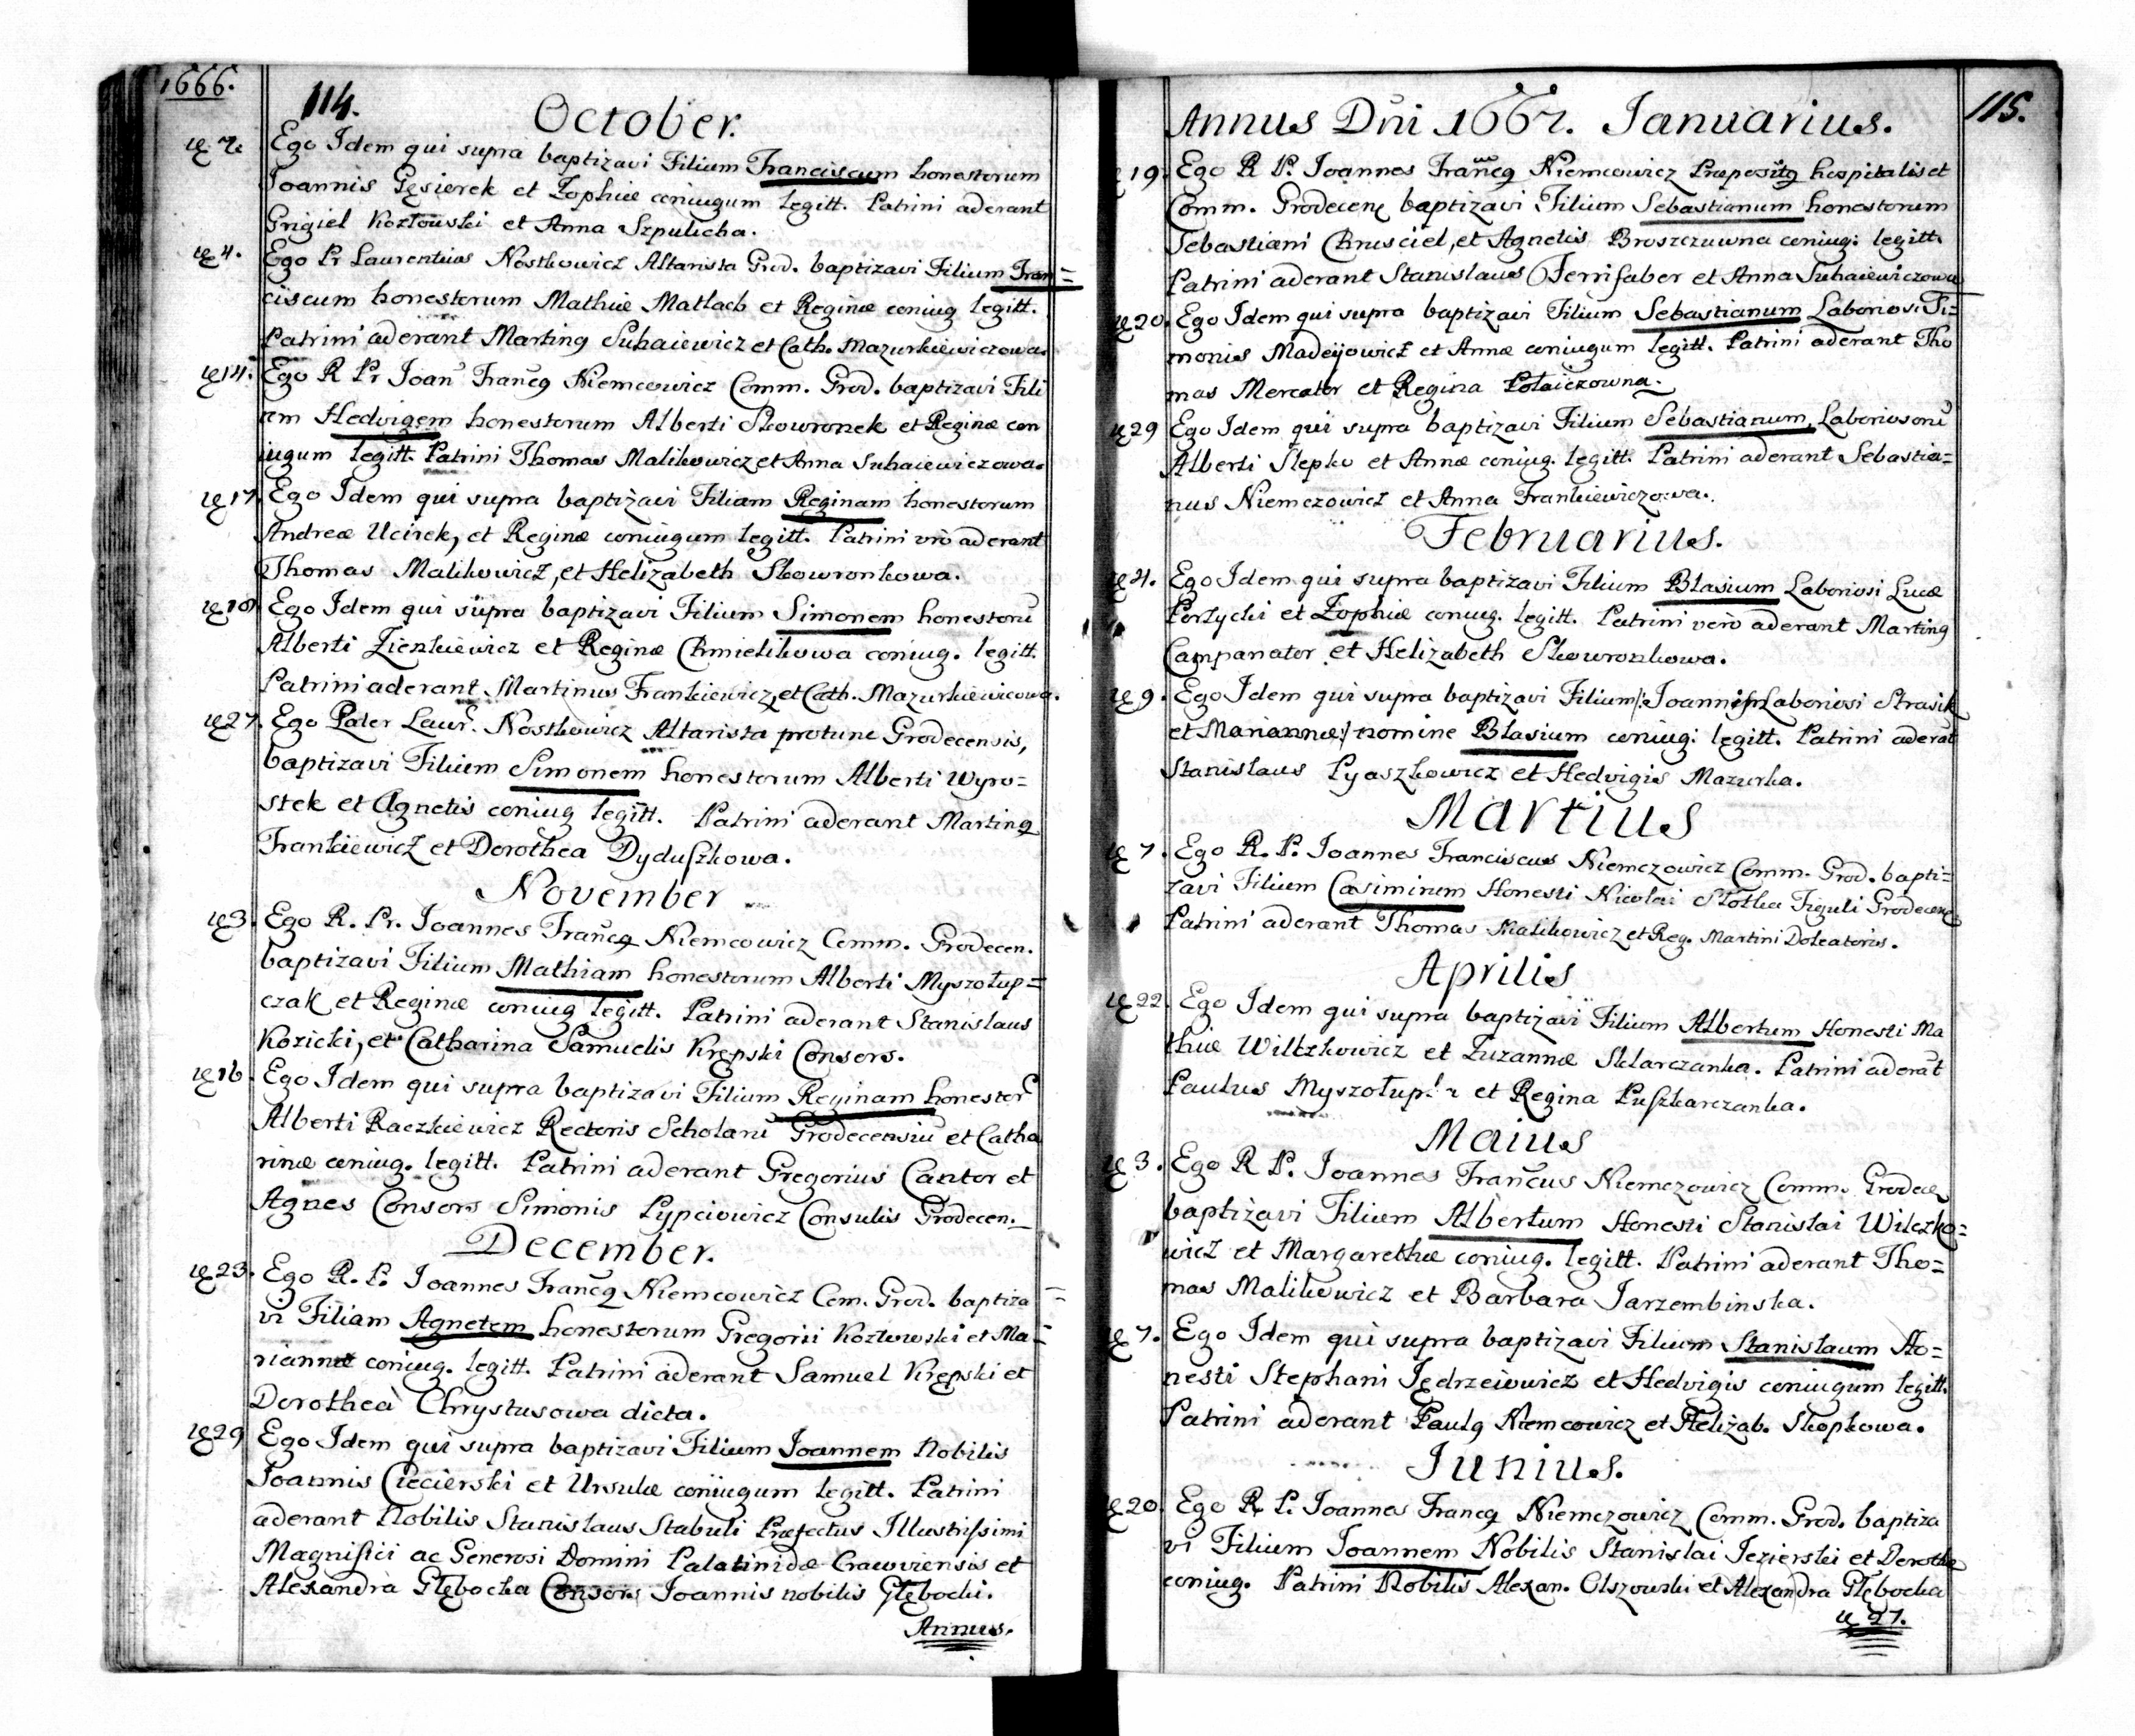 1666.
114.
October.
Ego Idem qui supra baptizavi Filium Franciscum honestorum
Joannis Gęsierek et Zophiæ coniugum legitt. Patrini aderant
Grigiel Kozłowski et Anna Szpulicha.
4. Ego Pr Laurentius Nostkowicz Altarista Grod. baptizavi Filium Fran=
ciscum honestorum Mathiæ Matlach et Reginæ coniug legitt.
Patrini aderant Marting Suhaiewicz et Cath. Mazurkiewiczowa.
14. Ego R Pr Joan Francg Niemcowicz Comm. Grod. baptizavi Fili
am Hedvigem honestorum Alberti Skowronek et Reginæ con
iugum legitt. Patrini Thomas Malikowicz et Anna Suhaiewiczowa.
17. Ego Idem qui supra baptizavi Filiam Reginam honestorum
Andreæ Ucirek, et Reginæ coniugum legitt. Patrini vrò aderant
Thomas Malikowicz, et Helizabeth Skowronkowa.
Ego Idem qui supra baptizavi Filium Simonem honestorũ
Alberti Zienkiewicz et Reginæ Chmielikowa coniug. legitt.
Patrini aderant Martinus Frankiewicz, et Cath. Mazurkiewicowa.
27. Ego Pater Laur. Nostkowicz Altarista protunc Grodecensis,
baptizavi Filium Simonem honestorum Alberti Wyro=
stek et Agnetis coniug legitt. Patrini aderant Marting
Frankiewicz et Dorothea Dyduszkowa.
November
3. Ego R. Pr. Joannes Francg Niemcowicz Comm. Grodecen.
baptizavi Filium Mathiam honestorum Alberti Myszołup=
czak et Reginæ coniug legitt. Patrini aderant Stanislaus
Kozicki, et Catharina Samuelis Krępski Consors.
16. Ego Idem qui supra baptizavi Filium Reginam honestor
Alberti Raczkiewicz Rectoris Scholarũ Grodecensiũ et Catha
rinæ coniug. legitt. Patrini aderant Gregorius Cantor et
Agnes Consors Simonis Lypciowicz Consulis Grodecen.
December.
23. Ego R. P. Joannes Francg Niemcowicz Com. Grod. baptiza=
vi Filiam Agnetem honestorum Gregorii Kozłowski et Ma=
riannæ coniug. legitt. Patrini aderant Samuel Krępski et
Dorothea Chrystusowa dicta.
29 Ego Idem qui supra baptizavi Filium Joannem Nobilis
Joannis Ciecierski et Ursulæ coniugum legitt. Patrini
aderant Nobilis Stanislaus Stabuli Præfectus Illustrissimi
Magnifici ac Generosi Domini Palatinidæ Cracoviensis et
Alexandra Głębocka Consors Joannis nobilis Głębocki.
Annus.
115.
Annus Dñi 1667. Januarius.
19. Ego R P. Joannes Francg Niemcowicz Præpositg hospitalis et
Comm. Grodecen baptizavi Filium Sebastianum honestorum
Sebastiani Chrusciel, et Agnetis Broszczuwna coniug: legitt.
Patrini aderant Stanislaus Ferrifaber et Anna Suhaiewiczowa
20. Ego Idem qui supra baptizavi Filium Sebastianum Laboriosi Si=
monis Madeijowicz et Annæ coniugum legitt. Patrini aderant Tho
mas Mercator et Regina Potaiczowna.
29 Ego Idem qui supra baptizavi Filium Sebastianum, Laboriosorũ
Alberti Slepko et Annæ coniug. legitt. Patrini aderant Sebastia=
nus Niemczowicz et Anna Frankiewiczowa.
Februarius.
4. Ego Idem qui supra baptizavi Filium Blasium Laboriosi Lucæ
Porzycki et Zophiæ coniug. legitt. Patrini verò aderant Marting
Campanator et Helizabeth Skowronkowa.
9. Ego Idem qui supra baptizavi Filium /: Joannis Laboriosi Strasik
et Mariannæ :/ nomine Blasium coniug: legitt. Patrini aderãt
Stanislaus Pyaszkowicz et Hedvigis Mazurka.
Martius
7. Ego R. P. Joannes Franciscus Niemczowicz Comm. Grod. bapti=
zavi Filium Casimirum Honesti Nicolai Słotka Figuli Grodecen
Patrini aderant Thomas Malikowicz et Reg. Martini Doleatoris.
Aprilis
22. Ego Idem qui supra baptizavi Filium Albertum Honesti Ma
thiæ Wiltzkowicz et Zuzannæ Sklarczanka. Patrini aderãt
Paulus et Regina Puszkarczanka.
Maius
3. Ego R P. Joannes Francus Niemczowicz Comm. Grodece
baptizavi Filium Albertum Honesti Stanislai Wilczko=
wicz et Margarethæ coniug. legitt. Patrini aderant Tho=
mas Malikowicz et Barbara Jarzembinska.
7. Ego Idem qui supra baptizavi Filium Stanislaum Ho=
nesti Stephani Jędrzeiowicz et Hedvigis coniugum legitt.
Patrini aderant Paulg Niemcowicz et Helizab. Skopkowa.
Junius.
20. Ego R P. Joannes Francg Niemczowicz Comm. Grod. baptiza
vi Filium Joannem Nobilis Stanislai Jezierski et Dorothe
coniug. Patrini Nobilis Alexan. Olszowski et Alexandra Głębocka